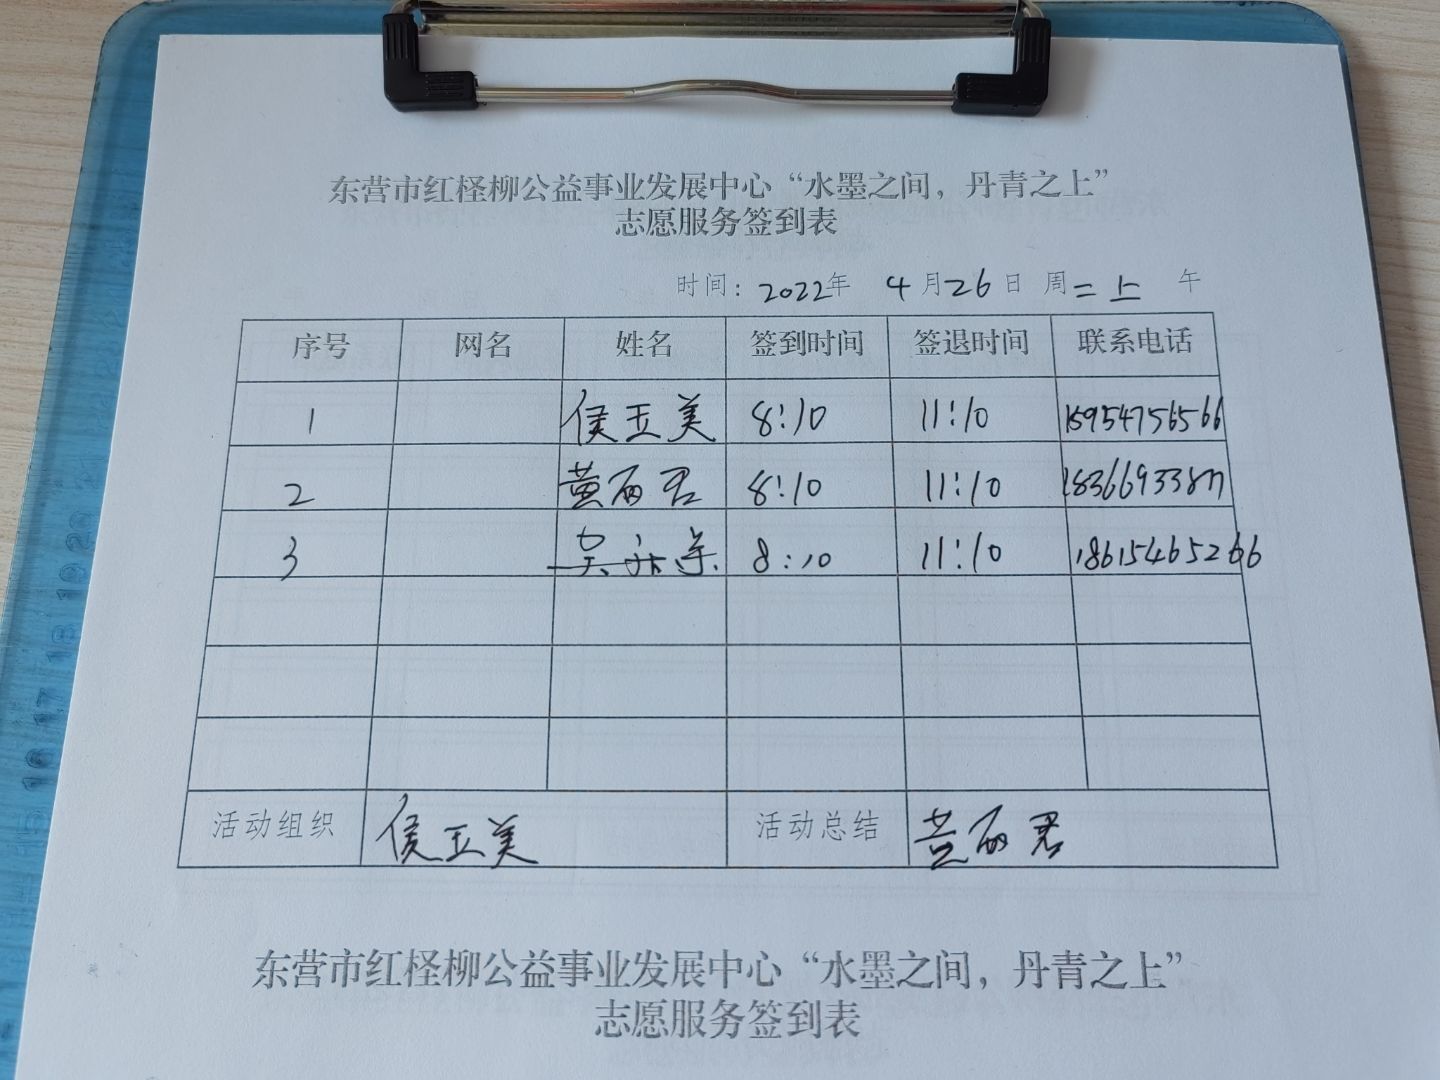 东营市红柽柳公益事业发展中心“水墨之间，丹青之上”
志愿服务签到表
时间：2022年 4月26日 周二上午
序号 网名 姓名 签到时间 签退时间 联系电话
1 侯玉美 8:10 11:10 15954756566
2 黄丽君 8:10 11:10
3 8:10 11:10 18615465266
活动组织 侯玉美 活动总结 黄丽君
东营市红柽柳公益事业发展中心“水墨之间，丹青之上”
志愿服务签到表